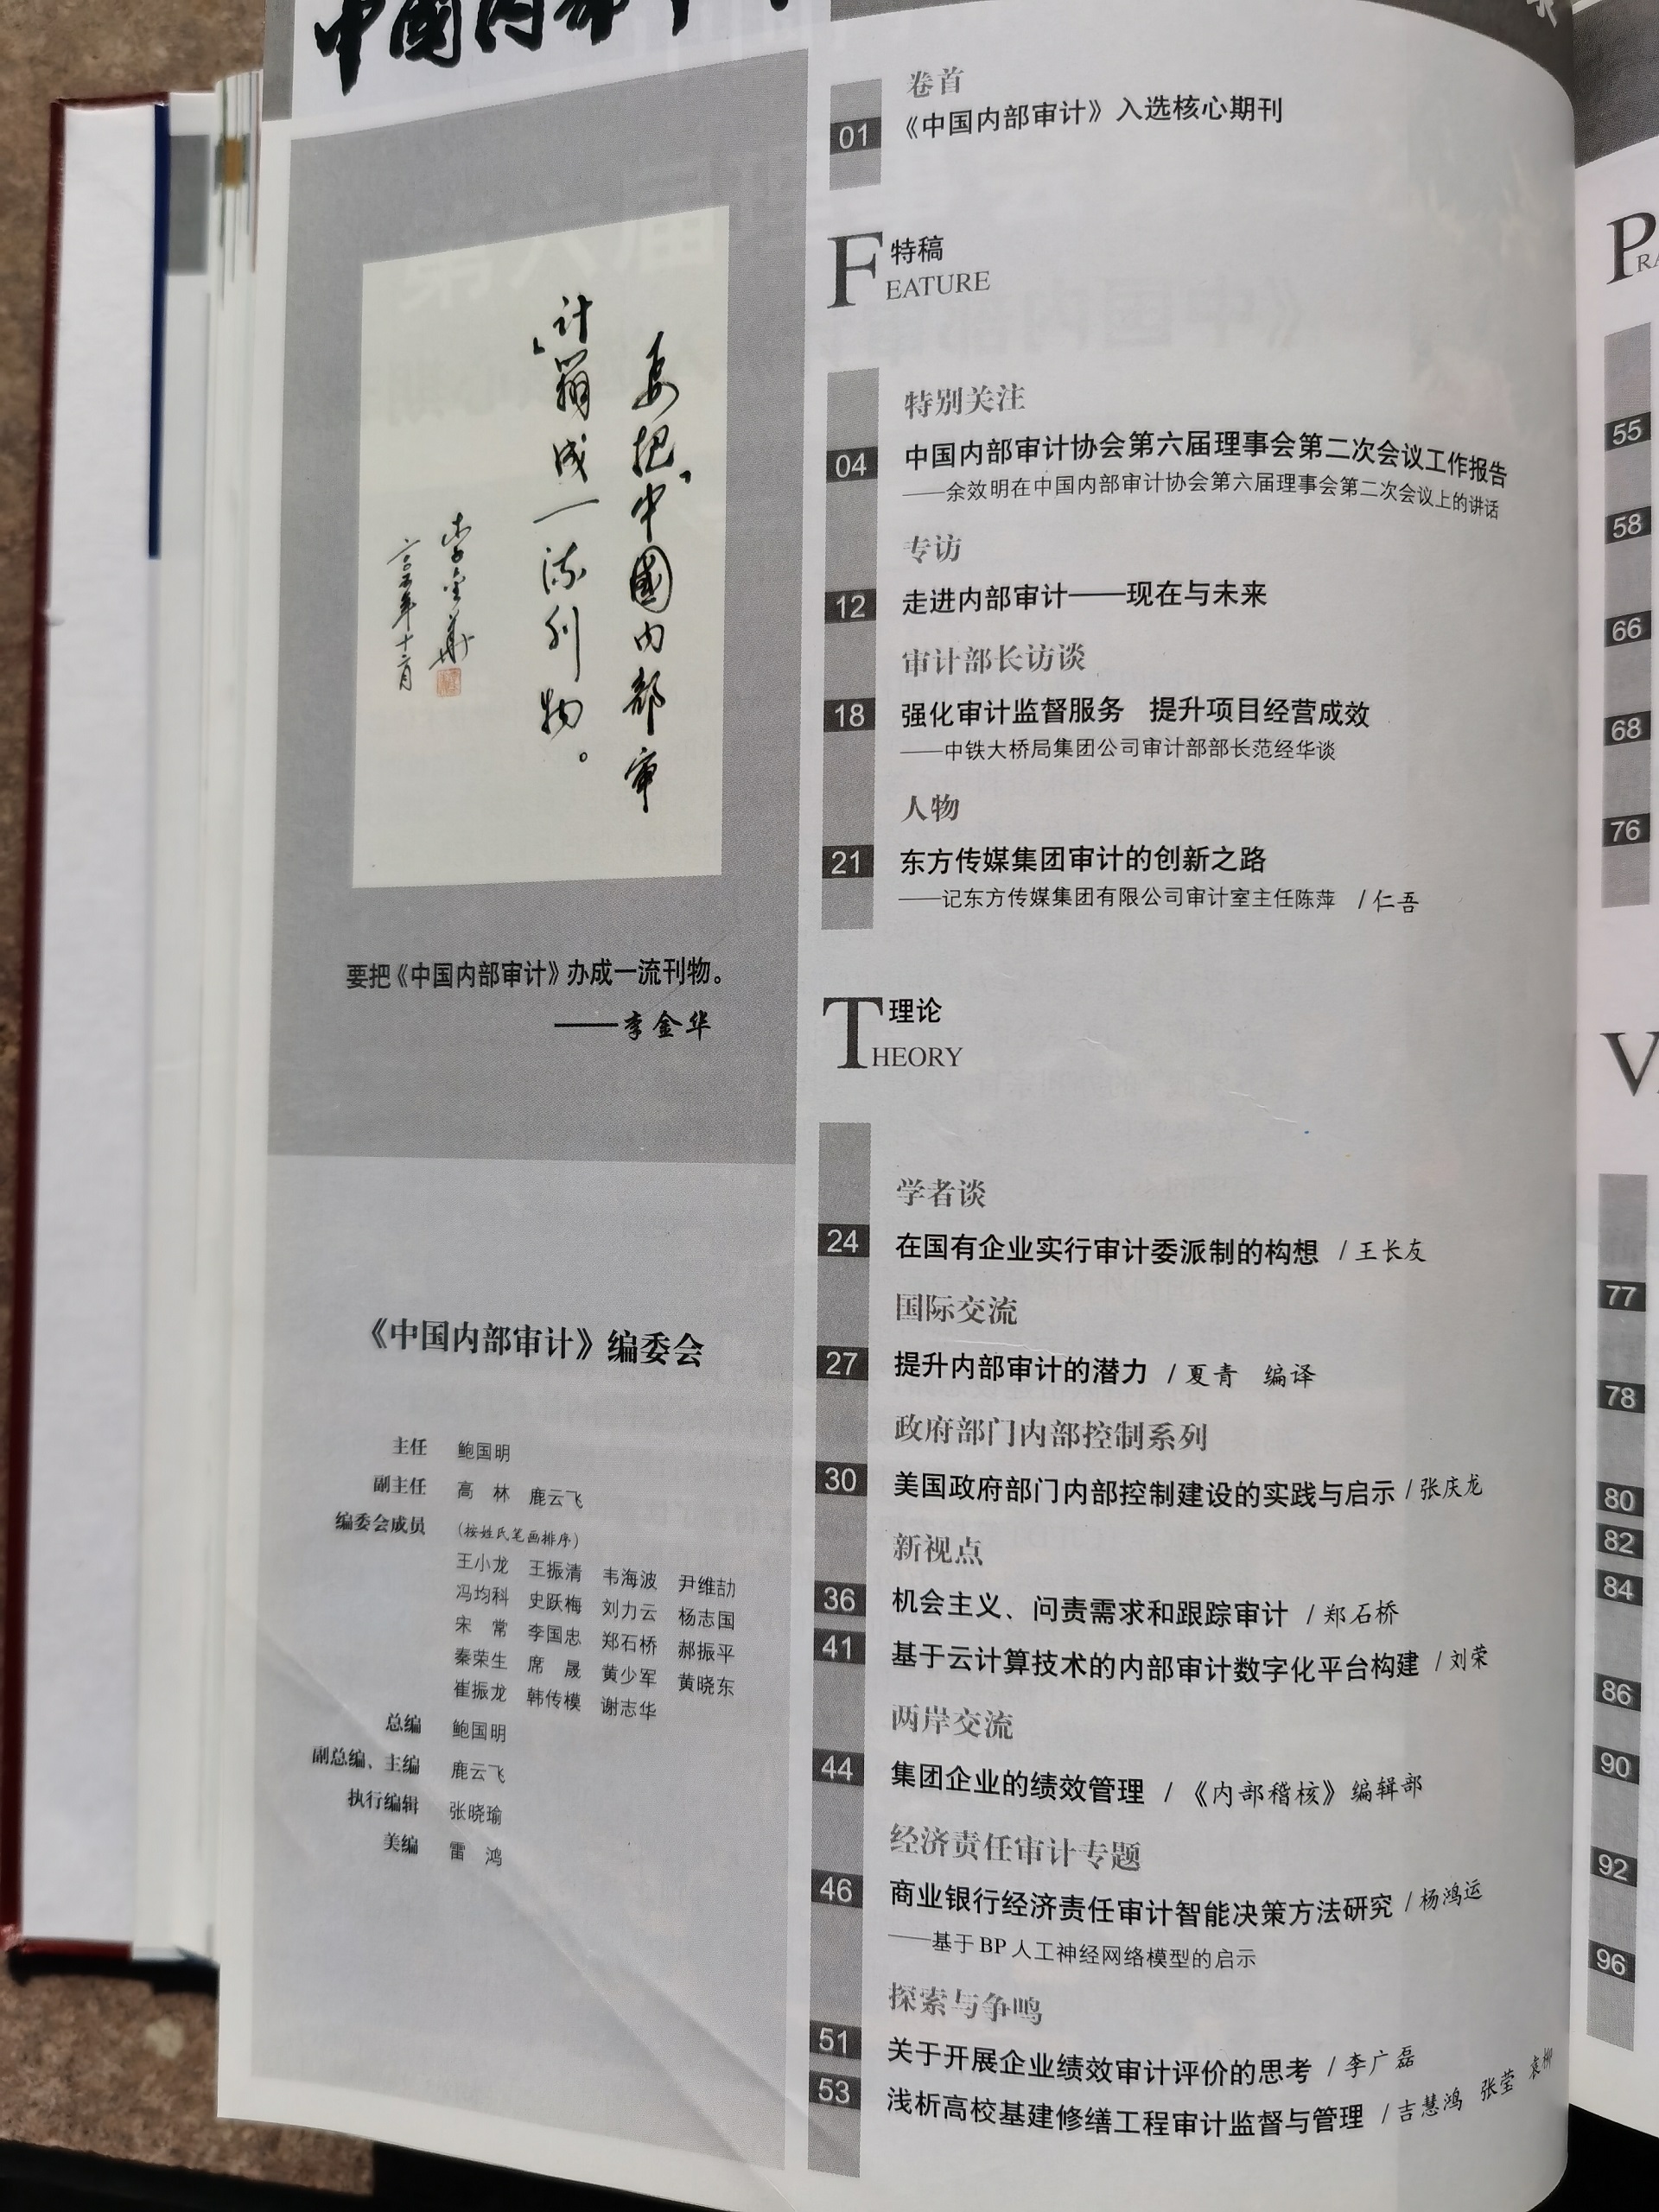 中國内部
要把《中國内部審
計》辦成一流刊物。
李金華
二〇〇五年十二月
要把《中国内部审计》办成一流刊物。
——李金华
《中国内部审计》编委会
主任 鲍国明
副主任 高 林 鹿云飞
编委会成员 (按姓氏笔画排序)
王小龙 王振清 韦海波 尹维劼
冯均科 史跃梅 刘力云 杨志国
宋 常 李国忠 郑石桥 郝振平
秦荣生 席 晟 黄少军 黄晓东
崔振龙 韩传模 谢志华
总编 鲍国明
副总编、主编 鹿云飞
执行编辑 张晓瑜
美编 雷 鸿
卷首
01 《中国内部审计》入选核心期刊
特稿
FEATURE
特别关注
04 中国内部审计协会第六届理事会第二次会议工作报告
——余效明在中国内部审计协会第六届理事会第二次会议上的讲话
专访
12 走进内部审计——现在与未来
审计部长访谈
18 强化审计监督服务 提升项目经营成效
——中铁大桥局集团公司审计部部长范经华谈
人物
21 东方传媒集团审计的创新之路
——记东方传媒集团有限公司审计室主任陈萍 / 仁吾
理论
THEORY
学者谈
24 在国有企业实行审计委派制的构想 / 王长友
国际交流
27 提升内部审计的潜力 / 夏青 编译
政府部门内部控制系列
30 美国政府部门内部控制建设的实践与启示 / 张庆龙
新视点
36 机会主义、问责需求和跟踪审计 / 郑石桥
41 基于云计算技术的内部审计数字化平台构建 / 刘荣
两岸交流
44 集团企业的绩效管理 / 《内部稽核》编辑部
经济责任审计专题
46 商业银行经济责任审计智能决策方法研究 / 杨鸿运
——基于 BP 人工神经网络模型的启示
探索与争鸣
51 关于开展企业绩效审计评价的思考 / 李广磊
53 浅析高校基建修缮工程审计监督与管理 / 吉慧鸿 张莹 袁柳
P
RA
55
58
66
68
76
V
77
78
80
82
84
86
90
92
96